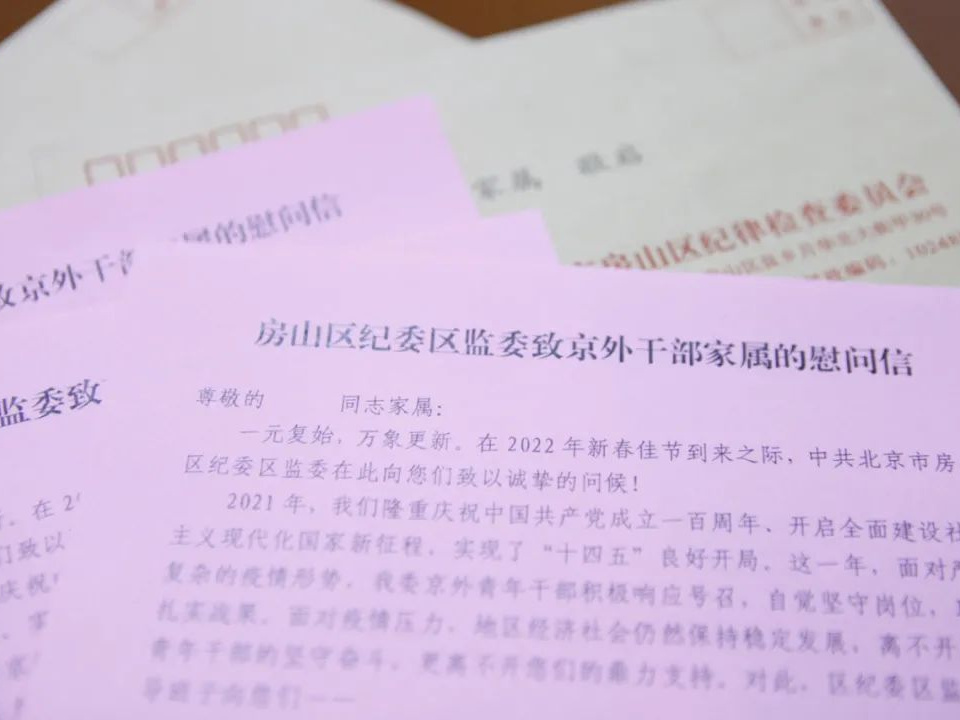 家属 敬启
房山区纪律检查委员会
属的慰问信
致京外干部
监委致
房山区纪委区监委致京外干部家属的慰问信
尊敬的 同志家属：
一元复始，万象更新。在 2022 年新春佳节到来之际，中共北京市房
区纪委区监委在此向您们致以诚挚的问候！
2021 年，我们隆重庆祝中国共产党成立一百周年、开启全面建设社
主义现代化国家新征程，实现了“十四五”良好开局。这一年，面对严
复杂的疫情形势，我委京外青年干部积极响应号召，自觉坚守岗位，
扎实战果。面对疫情压力，地区经济社会仍然保持稳定发展，离不开
青年干部的坚守奋斗，更离不开您们的鼎力支持。对此，区纪委区监
导班子向您们——
在 2
们致以
庆祝